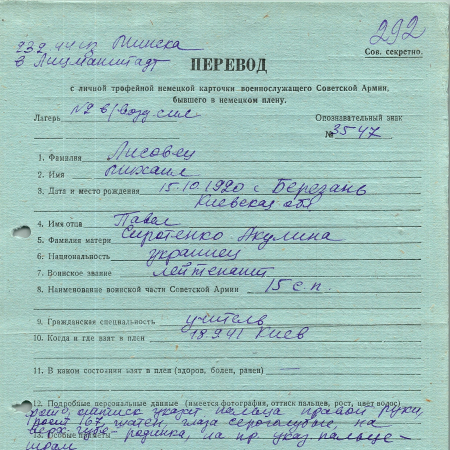 292
Сов. секретно.
23.2.44 из Минска
в Лицманштадт
ПЕРЕВОД
с личной трофейной немецкой карточки военнослужащего Советской Армии,
бывшего в немецком плену.
Лагерь №2 в/возд. сил
Опознавательный знак
№ 3547
1. Фамилия Лисовец
2. Имя Михаил
3. Дата и место рождения 15.10.1920 г. Березань
Киевская обл
4. Имя отца Павел
5. Фамилия матери Сиротенко Акулина
6. Национальность украинец
7. Воинское звание лейтенант
8. Наименование воинской части Советской Армии 15 с.п.
9. Гражданская специальность учитель
10. Когда и где взят в плен 18.9.41 Киев
11. В каком состоянии взят в плен (здоров, болен, ранен) —
12. Подробные персональные данные (имеется фотография, оттиск пальцев, рост, цвет волос)
оттиск указат пальца правой руки,
рост 167, шатен, глаза сероголубые, на
верх губе - родинка, на пр указ пальце -
13. Особые приметы
шрам